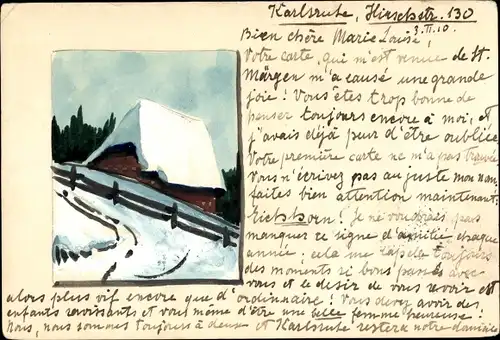 Karlsruhe, Hirschstr. 130
3. II. 10.
Bien chère Marie Louise,
Votre carte, qui m'est venue de St.
Märgen m'a causé une grande
joie! Vous êtes trop bonne de
penser toujours encore à moi, et
j'avais déjà peur d'être oubliée.
Votre première carte ne m'a pas trouvée
Vous n'écrivez pas au juste mon nom,
faites bien attention maintenant:
Je ne voudrais pas
manquer ce signe d'amitié chaque
année; cela me rapelle toujours
des moments si bons passés avec
vous et le desir de vous revoir est
alors plus vif encore que d'ordinaire! Vous devez avoir des
enfants ravissants et vous même d'être une belle femme heureuse!
Nous, nous sommes toujours à deux et Karlsruhe restera notre domicile